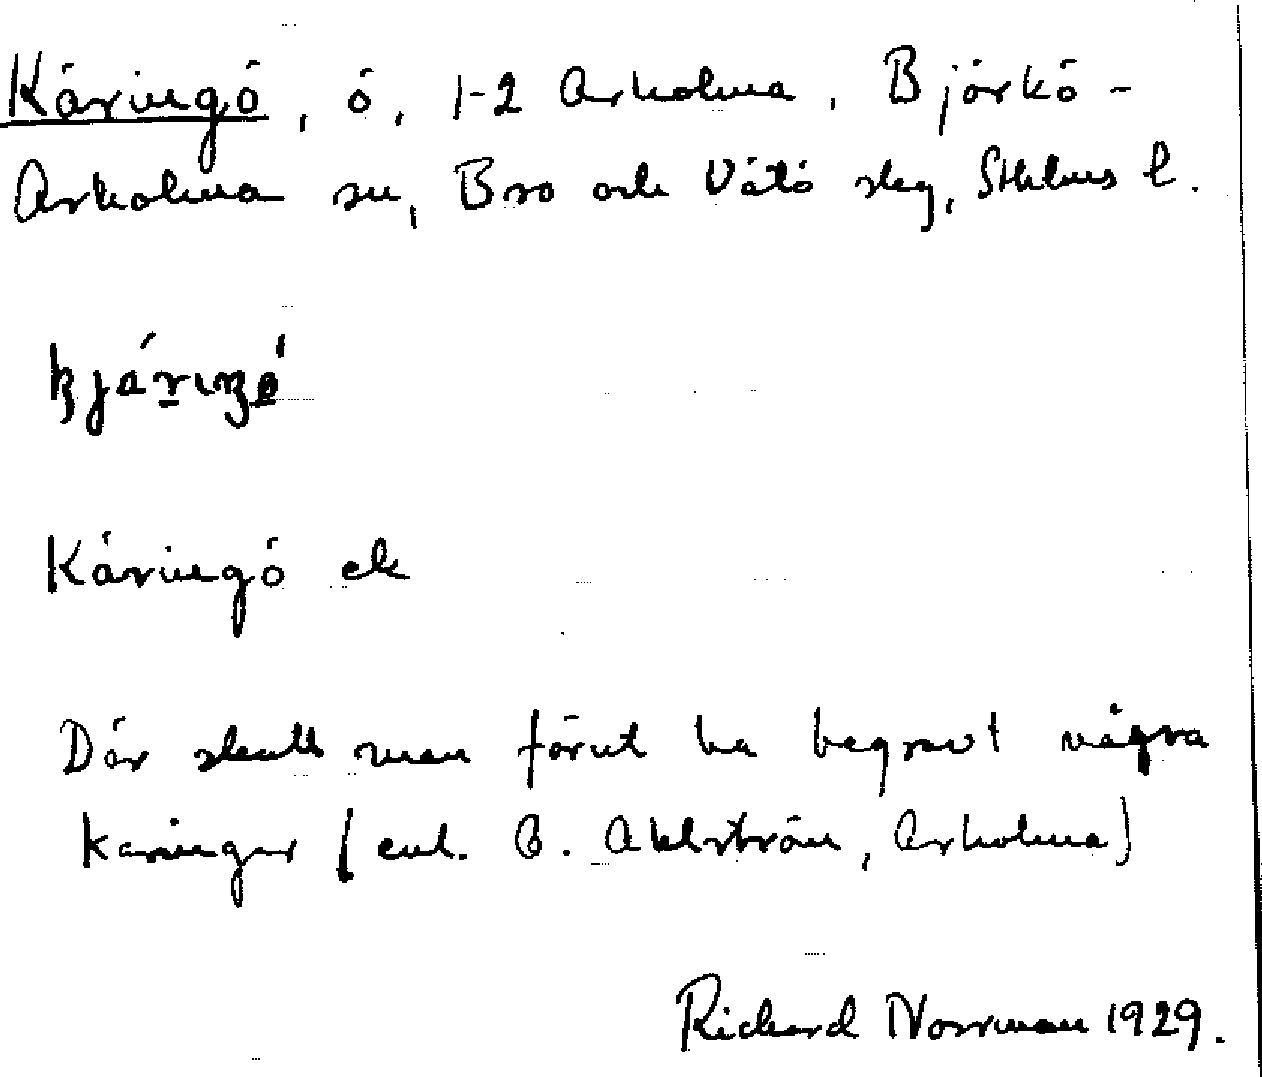 Käringö, ö, 1-2 Arholma, Björkö-
Arholma sn, Bro och Vätö skg, Sthlms l.
Käringö ek
Där skall man förut ha begravt några
käringar (enl. B. Ahlström, Arholma)
Richard Norrman 1929.